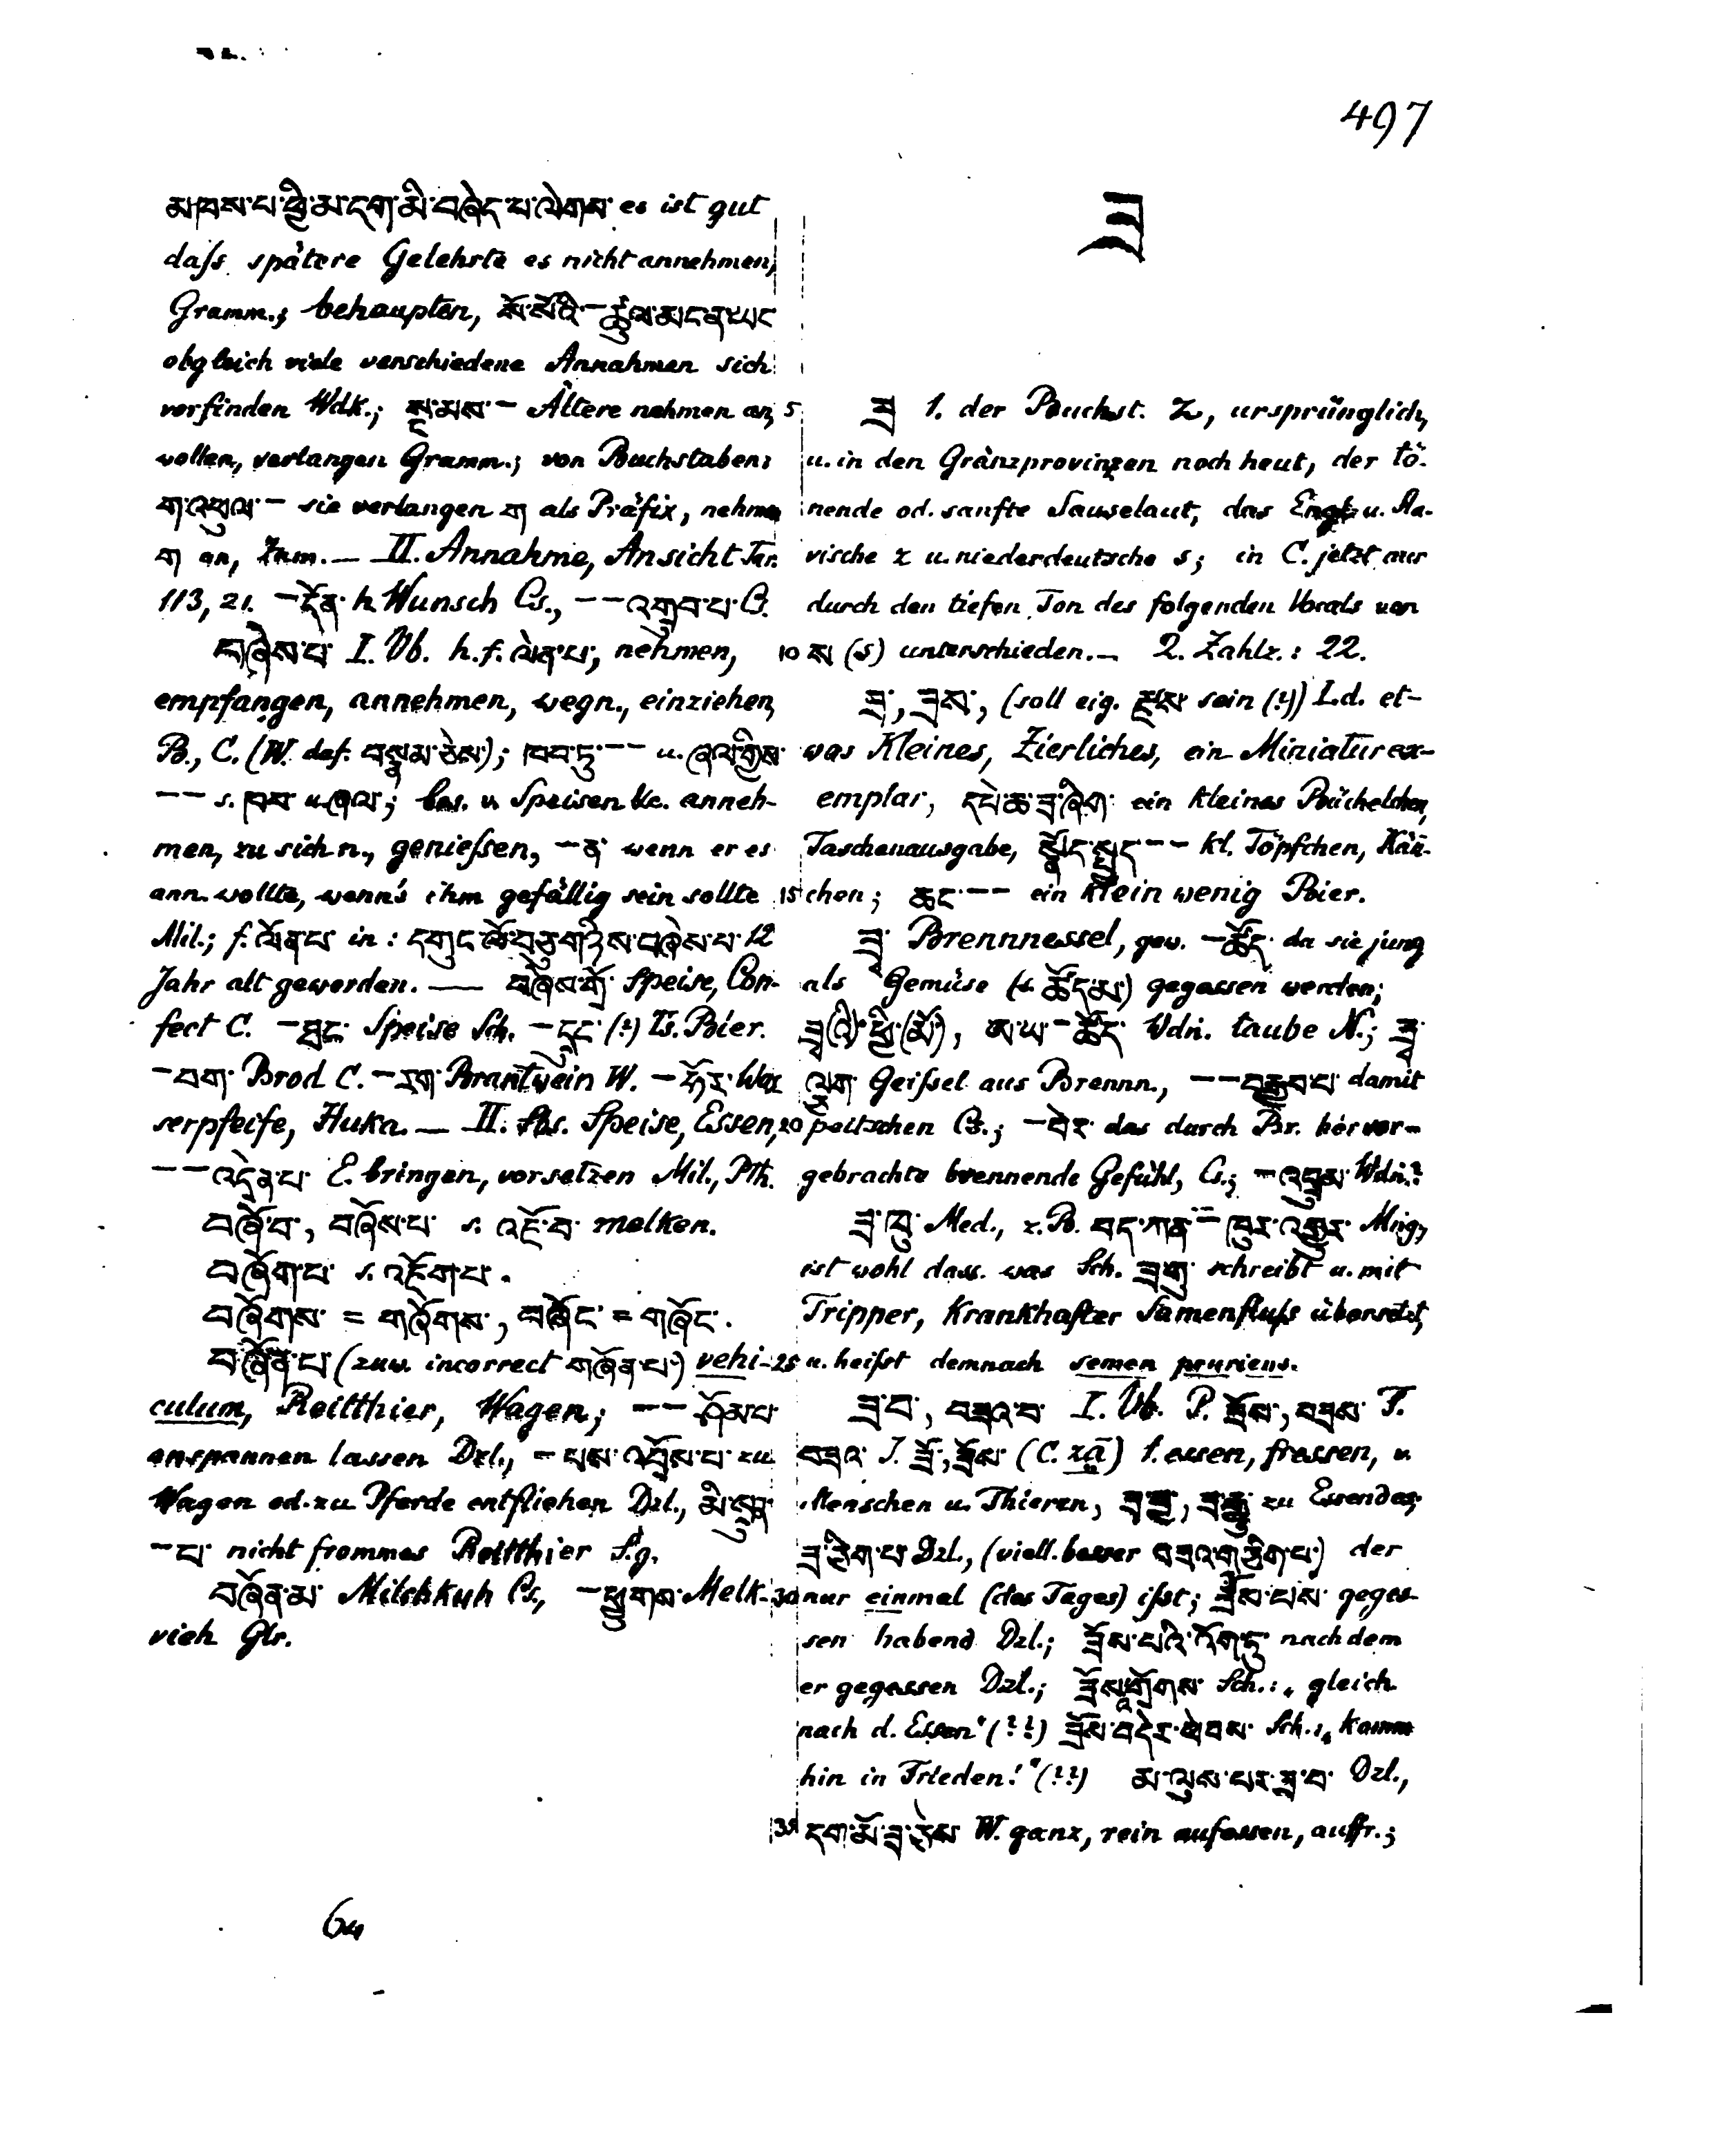 497
མཁས་པ་ཕྱི་མ་དག་མི་བཞེད་པ་ལེགས་ es ist gut
daſs spätere Gelehrte es nicht annehmen,
Gramm.; behaupten, སོ་སོའི་– ཚུལ་མང་ན་ཡང
obgleich viele verschiedene Annahmen sich
vorfinden Wdk.; སྔ་མས་– Ältere nehmen an,
wollen, verlangen Gramm.; von Buchstaben:
ག་འཕུལ་– sie verlangen ག als Präfix, nehmen
ག an, Zam. — II. Annahme, Ansicht Tar.
113, 21. –དོན་ h. Wunsch Cs., ––འགྲུབ་པ་ B.
བཞེས་པ་ I. Vb. h. f. ལེན་པ་, nehmen,
empfangen, annehmen, wegn., einziehen,
B., C. (W. daf. བསྣམ་ཅེས་); ཁབ་ཏུ་–– u. ཞལ་གྱིས་
–– s. ཁབ u. ཞལ་; bes. v. Speisen &c. anneh-
men, zu sich n., genieſsen, –ན་ wenn er es
ann. wollte, wenn's ihm gefällig sein sollte
Mil.; f. ལོན་པ་ in: དགུང་ལོ་བཅུ་གཉིས་བཞེས་པ་ 12
Jahr alt geworden. — བཞེས་གྲོ་ Speise, Con-
fect C. – Speise Sch. –ཆང་ (?) Ts. Bier.
–བག་ Brod C. –རག་ Brantwein W. –ཧོར་ Was
serpfeife, Huka. — II. Sbs. Speise, Essen,
––འདྲེན་པ་ E. bringen, vorsetzen Mil., Pth.
བཞོ་བ་, བཞོས་པ་ s. འཇོ་བ་ melken.
བཞོག་པ་ s. འཇོག་པ་.
བཞོགས་ = གཞོགས་, བཞོང་ = གཞོང་.
བཞོན་པ་ (zuw. incorrect གཞོན་པ་) vehi-
culum, Reitthier, Wagen; ––ཤོམ་པ་
anspannen lassen Dzl., –པས་འབྲོས་པ་ zu
Wagen od. zu Pferde entfliehen Dzl., མི་སྲུན་
–པ་ nicht frommes Reitthier S.g.
བཞོན་མ་ Milchkuh Cs., –ཕྱུགས་ Melk-
vieh Glr.
64
ཟ
5 ཟ 1. der Buchst. z, ursprünglich,
u. in den Gränzprovinzen noch heut, der tö-
nende od. sanfte Sauselaut, das Engl. u. Sla-
vische z u. niederdeutsche s; in C. jetzt nur
durch den tiefen Ton des folgenden Vocals von
10 ས (s) unterschieden. — 2. Zahlz.: 22.
ཟ་, ཟས་, (soll eig. རྫས་ sein (?)) Ld. et-
was Kleines, Zierliches, ein Miniaturex-
emplar, དཔེ་ཆ་ཟ་ཞིག་ ein kleines Büchelchen,
Taschenausgabe, སྣོད་སྤྱད་–– kl. Töpfchen, Kän-
15 chen; ཆང་–– ein klein wenig Bier.
ཟྭ་ Brennnessel, gew. –ཚོད་ da sie jung
als Gemüse (s. ཚོད་མ་) gegessen werden;
ཟྭ་(འི་)ཕྱི་(མོ་), ཨ་ཡ་–ཚོད་ Wdn. taube N.; ཟྭ་
ལྕག་ Geiſsel aus Brennn., ––བརྒྱབ་པ་ damit
20 peitschen Cs.; –བེར་ das durch Br. hervor-
gebrachte brennende Gefühl, Cs.; –འབྲུམ་ Wdn.?
ཟ་ཁུ་ Med., z. B. བད་ཀན་–ཁུར་འགྱུར་ Mng.,
ist wohl dass. was Sch. ཟ་གུ་ schreibt u. mit
Tripper, krankhafter Samenfluſs übersetzt,
25 u. heiſst demnach semen pruriens.
ཟ་བ་, བཟའ་བ་ I. Vb. P. ཟོས་, བཟས་ F.
བཟའ་ I. ཟོ་, ཟོས་ (C. zā) 1. essen, fressen, v.
Menschen u. Thieren, ཟ་རྒྱུ་, ཟ་རྒྱུ་ zu Essendes,
ཟ་ཉིག་པ་ Dzl., (viell. besser བཟའ་གཅིག་པ་) der
30 nur einmal (des Tages) iſst; ཟོས་པས་ geges-
sen habend Dzl.; ཟོས་པའི་འོག་ཏུ་ nachdem
er gegessen Dzl.; ཟོས་གྲོགས་ Sch.: „gleich
nach d. Essen" (??) ཟོས་བདེར་ཕེབས་ Sch.: „komm
hin in Frieden!" (??) མ་ལུས་པར་ཟ་བ་ Dzl.,
35 དག་མོ་ཟ་ཅེས་ W. ganz, rein aufessen, auffr.;